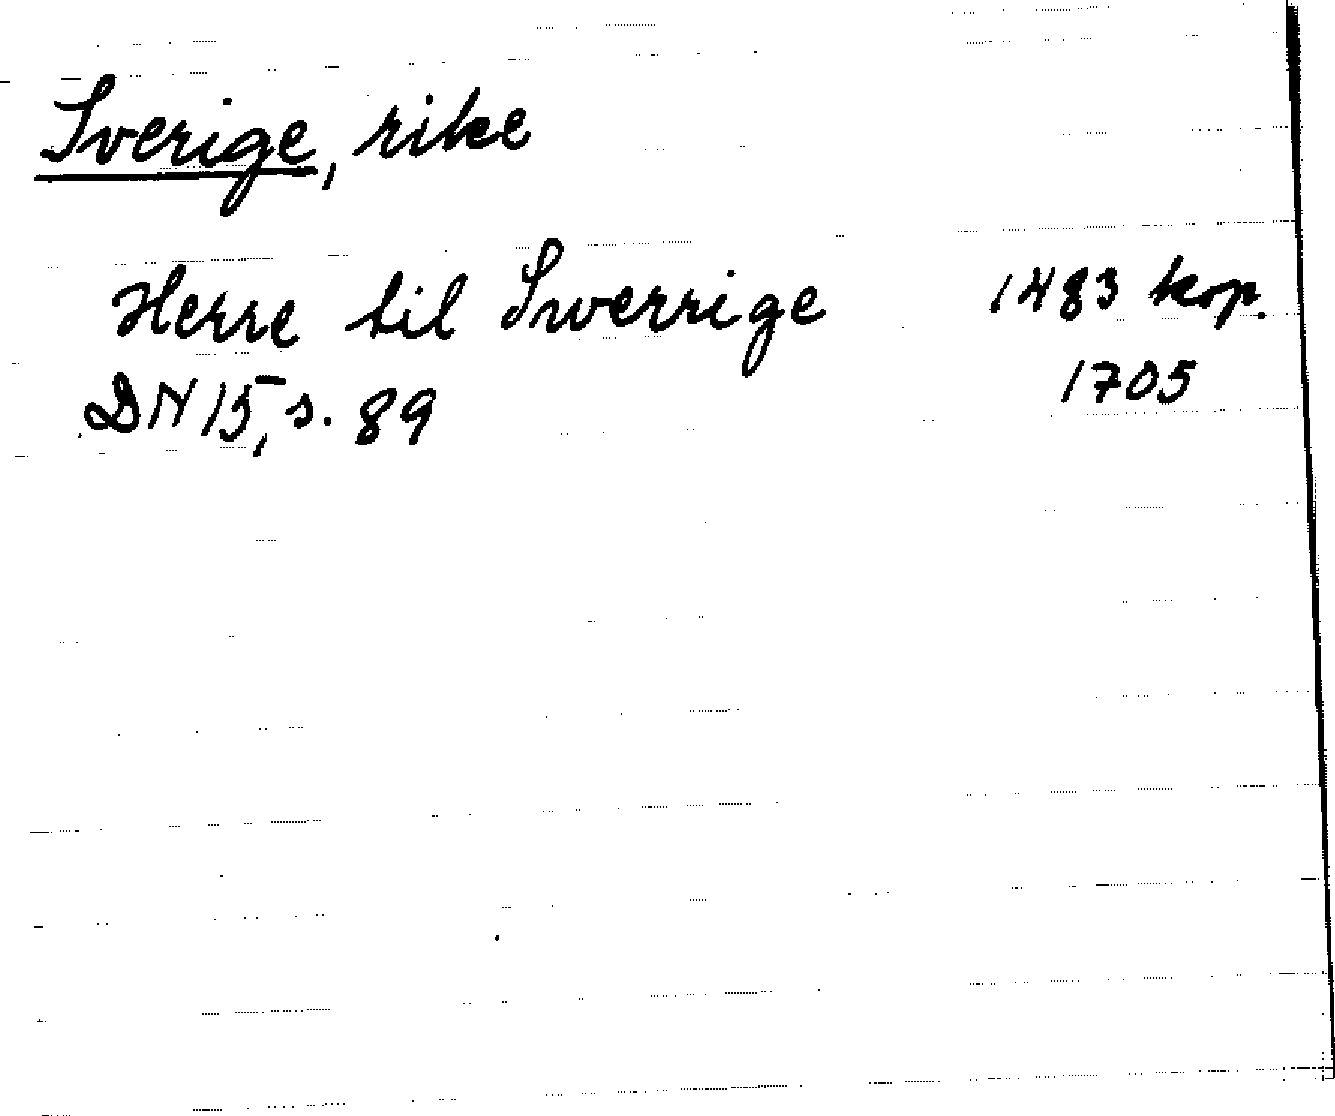 Sverige, rike
Herre til Swerrige 1483 kop.
DN 15, s. 89 1705